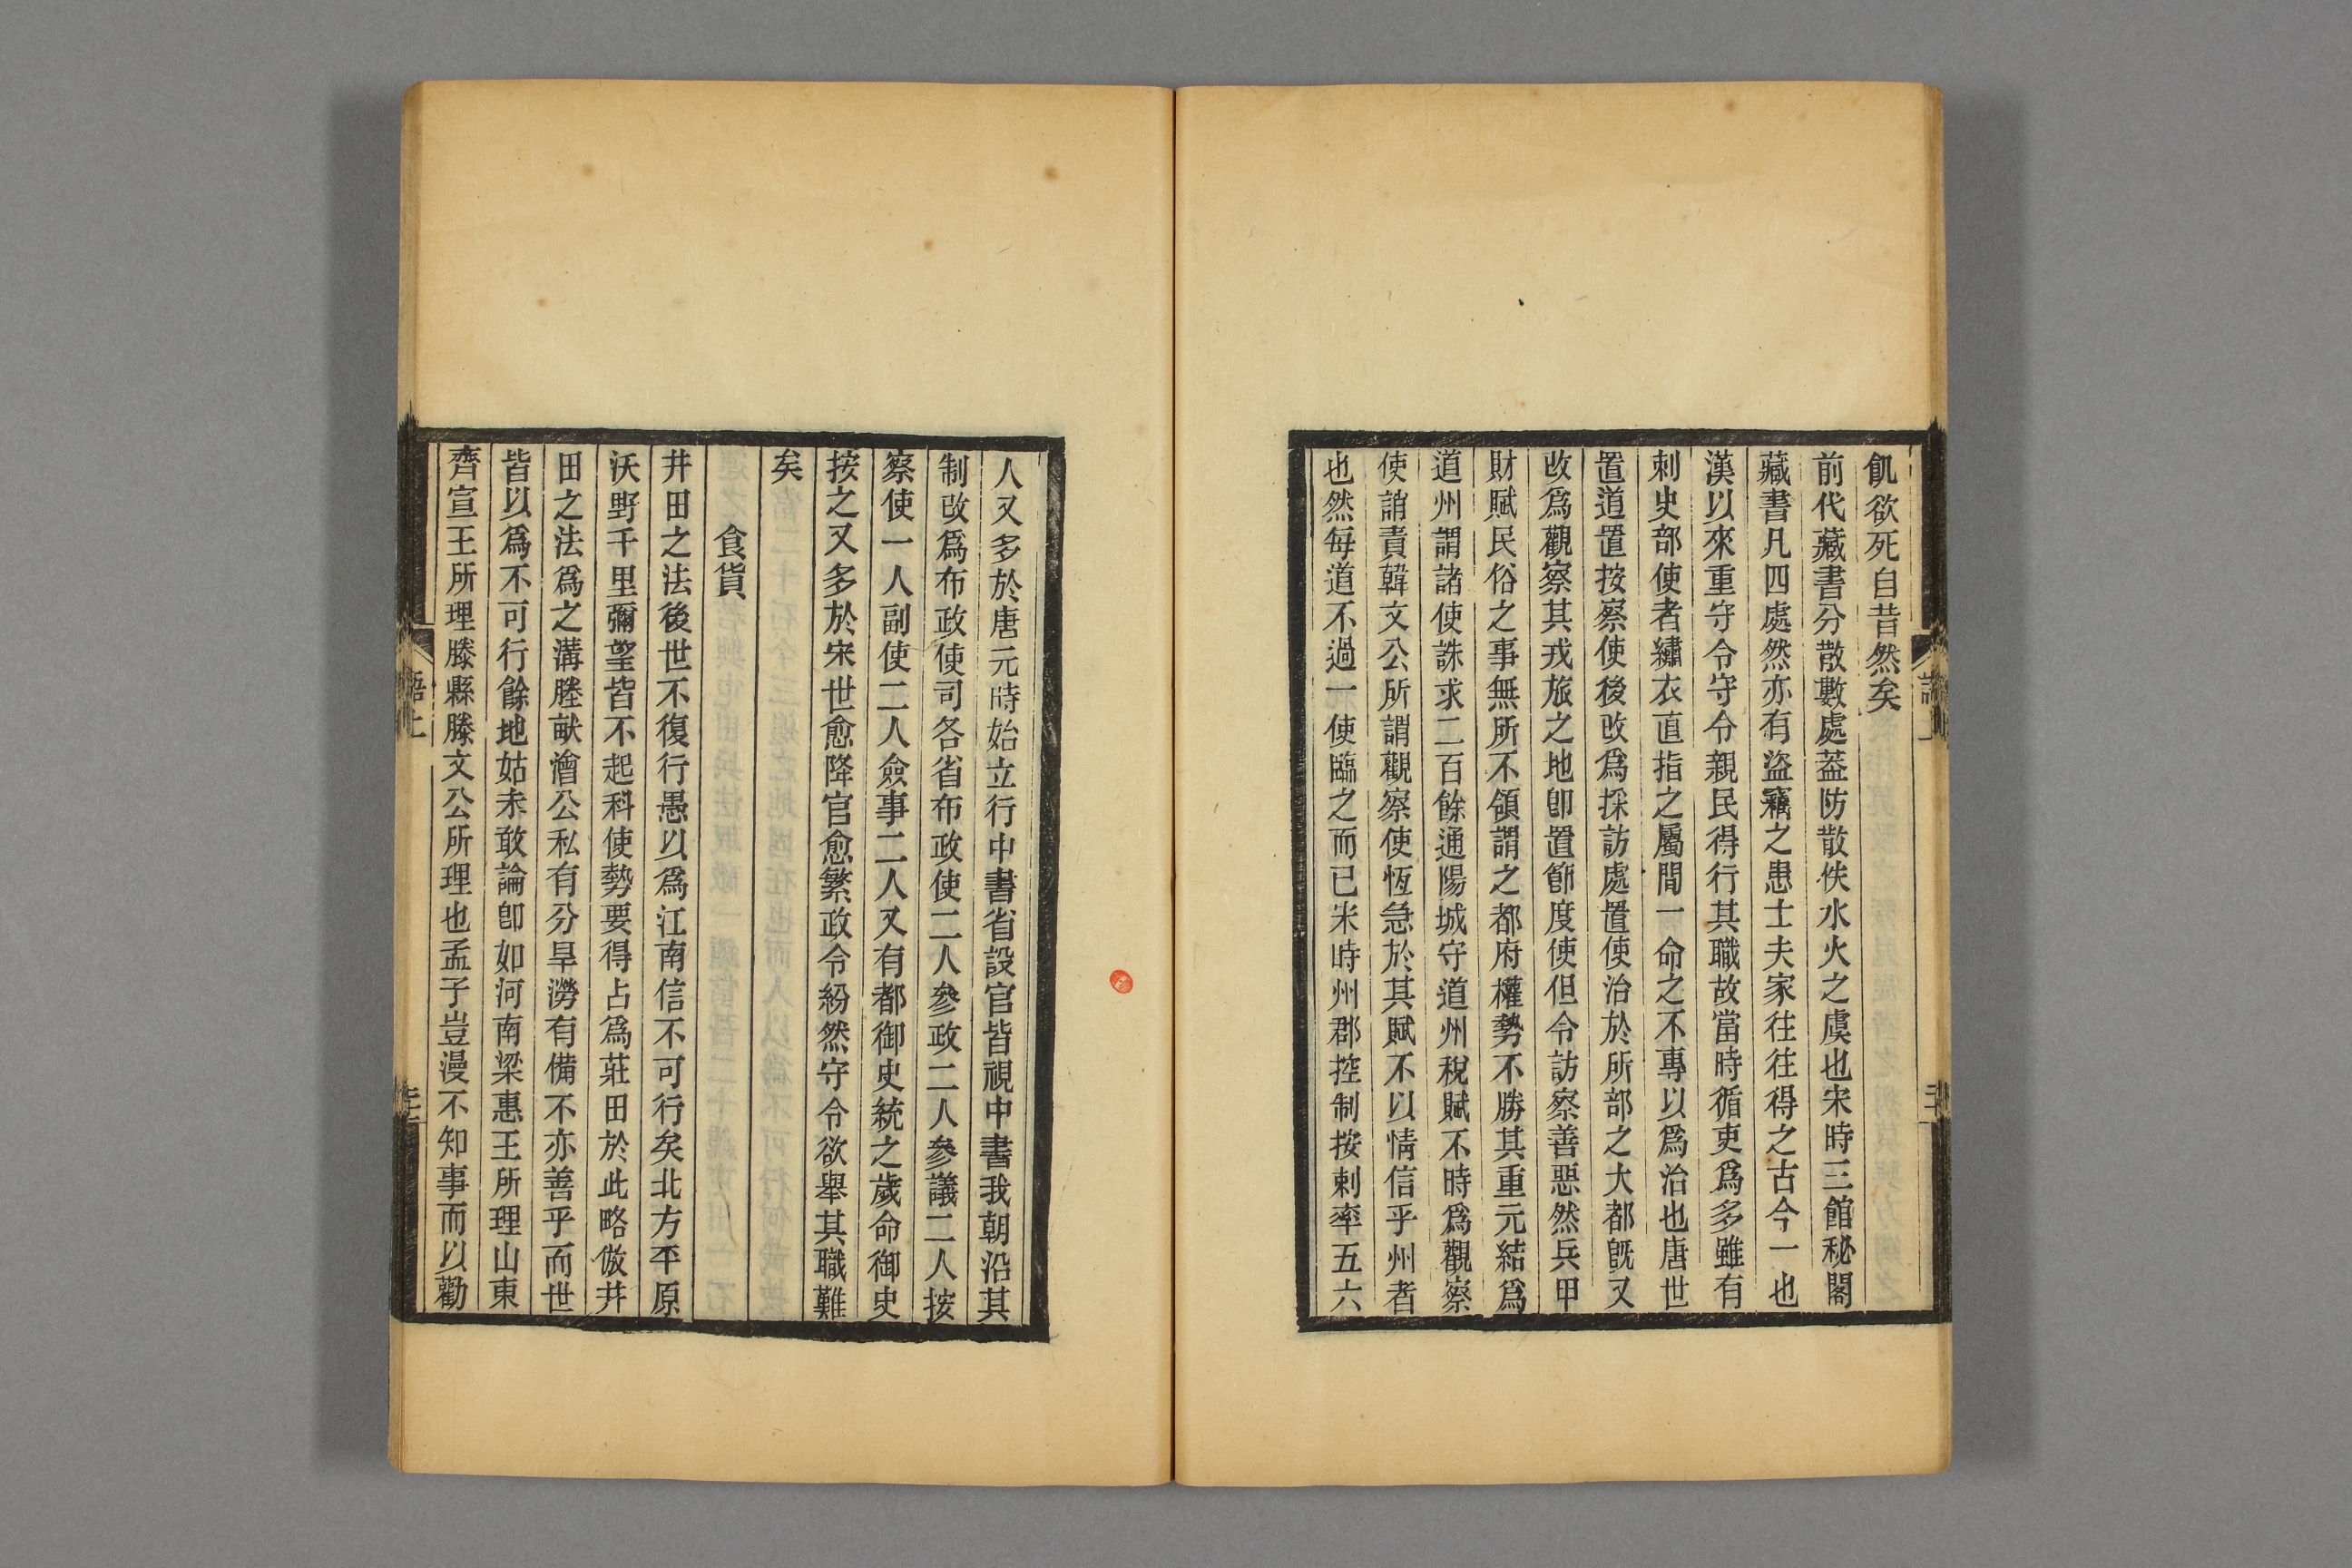 飢欲死自昔然矣
前代藏書分散數處葢防散佚水火之虞也宋時三館秘閣
藏書凡四處然亦有盜竊之患士夫家往往得之古今一也
漢以來重守令守令親民得行其職故當時循吏爲多雖有
刺史部使者繡衣直指之屬間一命之不專以爲治也唐世
置道置按察使後改爲採訪處置使治於所部之大都旣又
改爲觀察其戎旅之地卽置節度使但令訪察善惡然兵甲
財賦民俗之事無所不領謂之都府權勢不勝其重元結爲
道州謂諸使誅求二百餘通陽城守道州稅賦不時爲觀察
使誚責韓文公所謂觀察使恆急於其賦不以情信乎州者
也然每道不過一使臨之而已宋時州郡控制按刺率五六
人又多於唐元時始立行中書省設官皆視中書我朝沿其
制改爲布政使司各省布政使二人參政二人參議二人按
察使一人副使二人僉事二人又有都御史統之歲命御史
按之又多於宋世愈降官愈繁政令紛然守令欲舉其職難
矣
食貨
井田之法後世不復行愚以爲江南信不可行矣北方平原
沃野千里彌望皆不起科使勢要得占爲莊田於此略倣井
田之法爲之溝塍畎澮公私有分旱澇有備不亦善乎而世
皆以爲不可行餘地姑未敢論卽如河南梁惠王所理山東
齊宣王所理滕縣滕文公所理也孟子豈漫不知事而以勸
語上